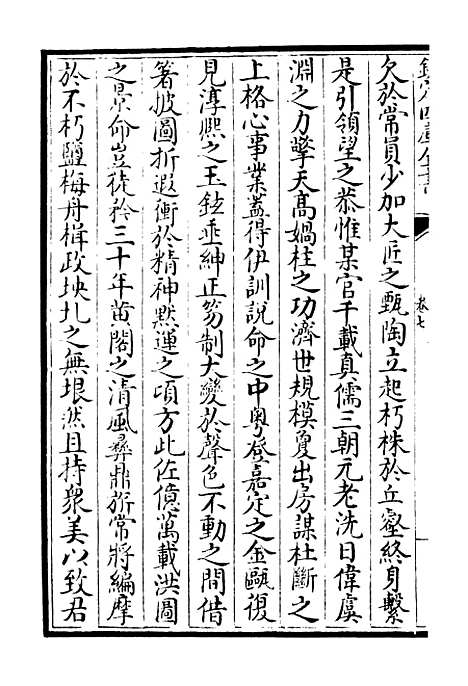 欽定四庫全書
卷七
欠於常員少加大匠之甄陶立起朽株於丘壑終身繫
是引領望之恭惟某官千載真儒三朝元老洗日偉虞
淵之力擎天髙媧柱之功濟世規模敻出房謀杜斷之
上格心事業葢得伊訓說命之中粤登嘉定之金甌復
見淳熙之玉鉉垂紳正笏制大變於聲色不動之間借
箸披圖折遐衝於精神黙運之頃方此佐億萬載洪圖
之景命豈徒矜三十年黄閣之清風彛鼎旂常將編摩
於不朽鹽梅舟楫政坱圠之無垠然且持衆美以致君